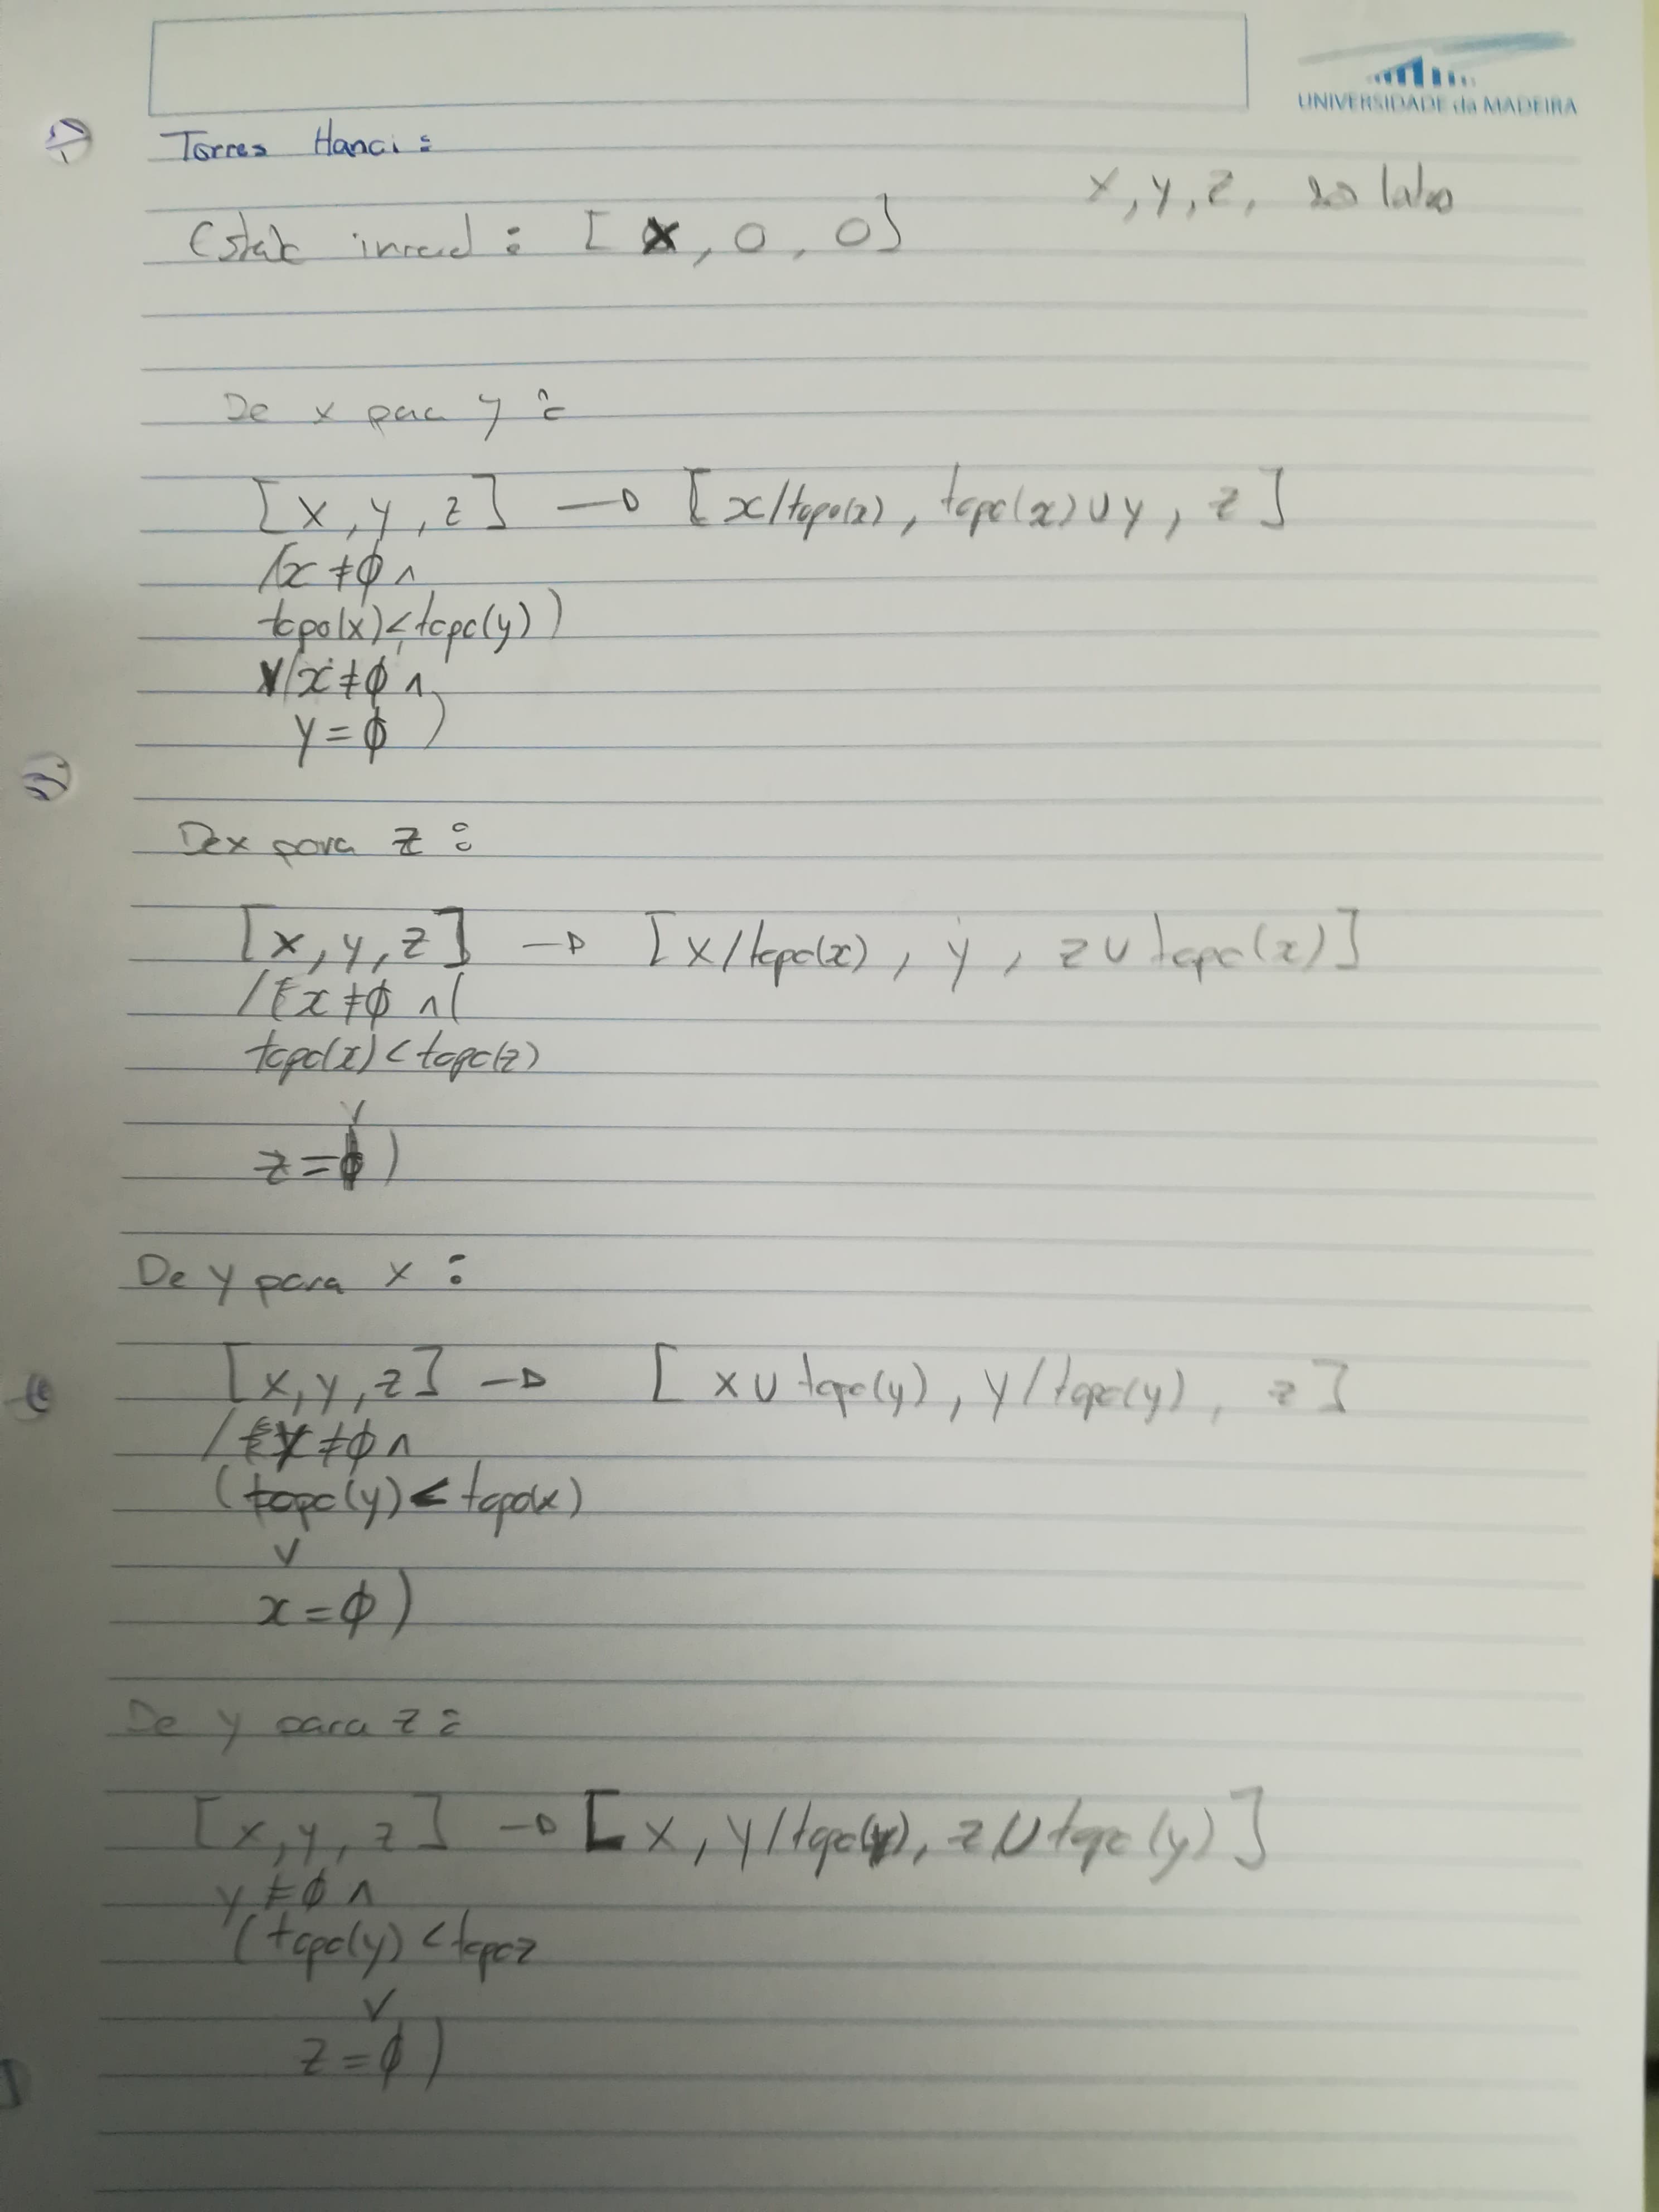 UNIVERSIDADE da MADEIRA
Torres Hanoi :
x, y, z, são
Estado inicial : [ x, 0, 0]
De x para y :
[x, y, z] → [x/topo(x), topo(x) ∪ y, z]
/(x ≠ ∅ ∧
topo(x) < topo(y))
∨(x ≠ ∅ ∧
y = ∅)
De x para z :
[x, y, z] → [x/topo(x), y, z ∪ topo(x)]
/(x ≠ ∅ ∧ (
topo(x) < topo(z)
∨
z = ∅)
De y para x :
[x, y, z] → [x ∪ topo(y), y/topo(y), z]
/ y ≠ ∅ ∧
(topo(y) < topo(x)
∨
x = ∅)
De y para z :
[x, y, z] → [x, y/topo(y), z ∪ topo(y)]
y ≠ ∅ ∧
(topo(y) < topo z
∨
z = ∅)